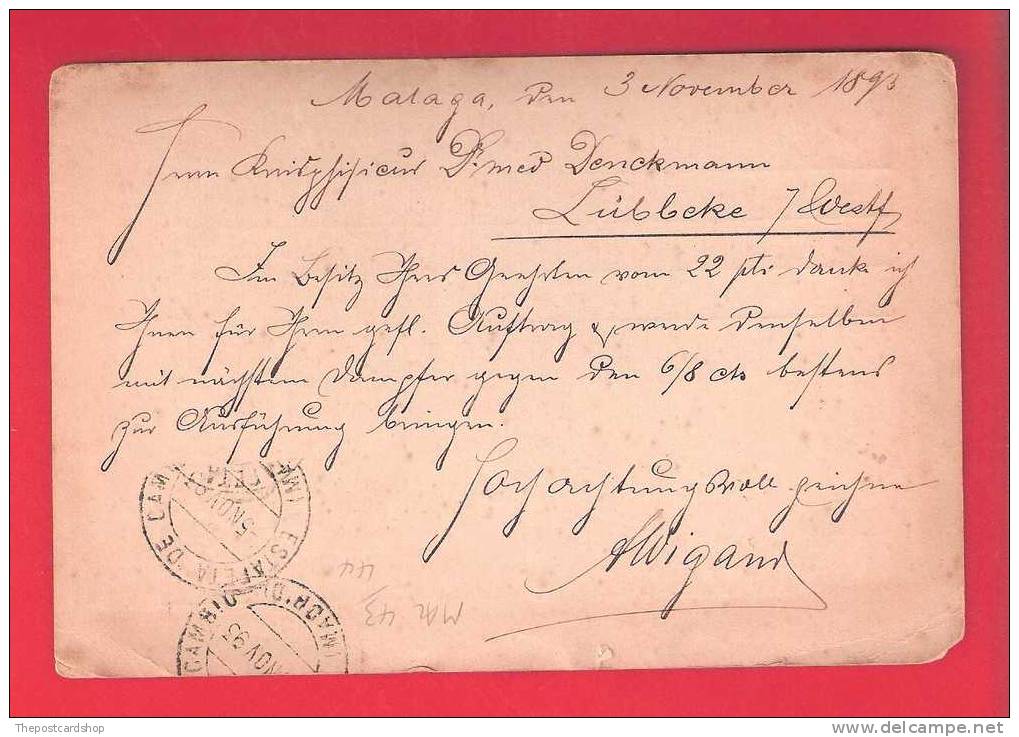 Malaga, den 3 November 1893
Herrn Kreisphisicus Dr med Denckmann
Lübbecke / Westf
Im Besitz Ihres Geehrten vom 22 pts danke ich
Ihnen für Ihren gefl. Auftrag & werde denselben
mit nächstem Dampfer gegen den 6/8 cts bestens
zur Ausführung bringen.
Hochachtungsvoll zeichne
AWigand
44
MAL 43
ESTAFETA DE CAM
5 NOV 93
NOV 93
Thepostcardshop
www.delcampe.net